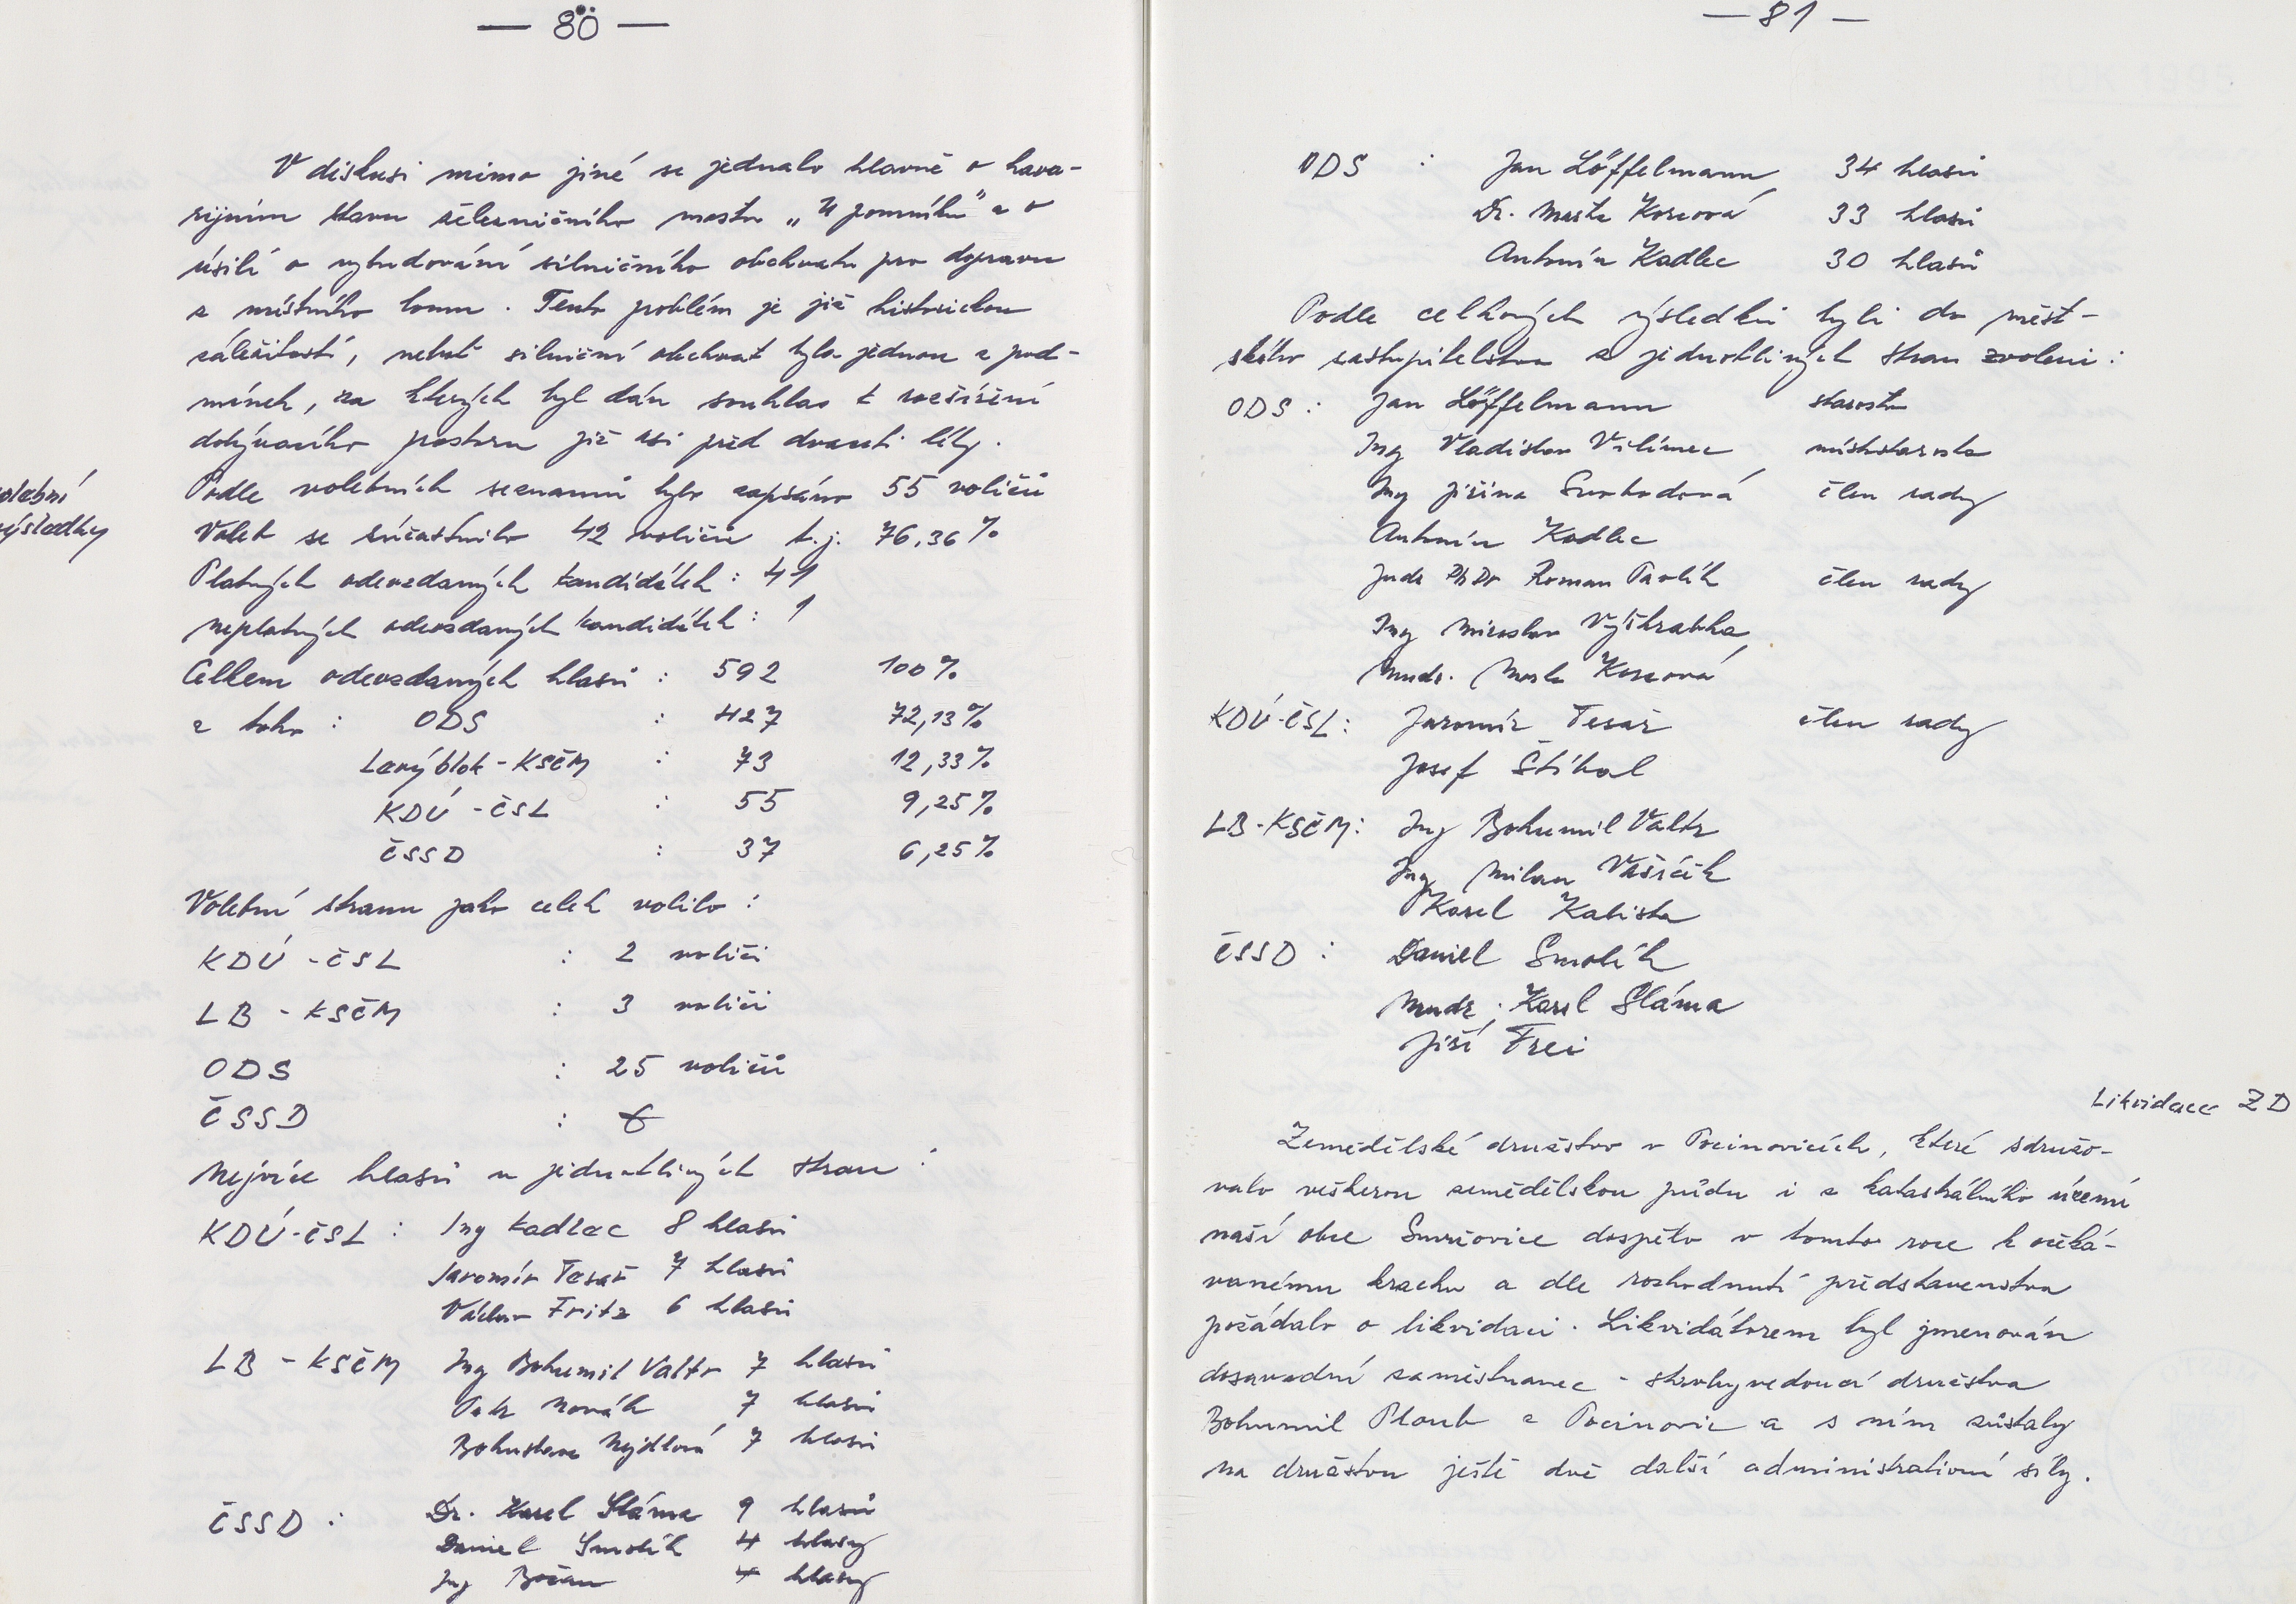 — 80 —
V diskusi mimo jiné se jednalo hlavně o hava-
rijním stavu železničního mostu „U pomníku" a o
úsilí o vybudování silničního obchvatu pro dopravu
z místního lomu. Tento problém je již historickou
záležitostí, neboť silniční obchvat byla jednou z pod-
mínek, za kterých byl dán souhlas k rozšíření
dobývacího prostoru již asi před dvaceti léty.
volební
výsledky
Podle volebních seznamů bylo zapsáno 55 voličů
Voleb se súčastnilo 42 voličů t.j. 76,36 %
Platných odevzdaných kandidátek : 41
neplatných odevzdaných kandidátek : 1
Celkem odevzdaných hlasů : 592 100 %
z toho : ODS : 427 72,13 %
Levý blok - KSČM : 73 12,33 %
KDÚ - ČSL : 55 9,25 %
ČSSD : 37 6,25 %
Volební stranu jako celek volilo :
KDÚ - ČSL : 2 voliči
LB - KSČM : 3 voliči
ODS : 25 voličů
ČSSD :
Nejvíce hlasů u jednotlivých stran :
KDÚ - ČSL : Ing Kadlec 8 hlasů
Jaromír Tesař 7 hlasů
Václav Fritz 6 hlasů
LB - KSČM Ing Bohumil Valtr 7 hlasů
Petr Novák 7 hlasů
Bohuslava Nejdlová 7 hlasů
ČSSD : Dr. Karel Sláma 9 hlasů
Daniel Smolík 4 hlasy
Ing 4 hlasy
— 81 —
ODS : Jan Löffelmann 34 hlasů
Dr. Marta Korcová 33 hlasů
Antonín Kadlec 30 hlasů
Podle celkových výsledků byli do měst-
ského zastupitelstva z jednotlivých stran zvoleni :
ODS : Jan Löffelmann starosta
Ing Vladislav Vilímec místostarosta
Ing Jiřina Svobodová člen rady
Antonín Kadlec
Judr PhDr Roman Pavlík člen rady
Ing Miroslav Výškrabka
Mudr. Marta Korcová
KDÚ-ČSL : Jaromír Tesař člen rady
Josef Štíbal
LB-KSČM : Ing Bohumil Valtr
Ing Milan Vašíček
Karel Kalista
ČSSD : Daniel Smolík
Mudr. Karel Sláma
Jiří Frei
Likvidace ZD
Zemědělské družstvo v Pocinovicích, které sdružo-
valo veškerou zemědělskou půdu i z katastrálního území
naší obce Smržovice dospělo v tomto roce k očeká-
vanému krachu a dle rozhodnutí představenstva
požádalo o likvidaci. Likvidátorem byl jmenován
dosavadní zaměstnanec - strohyvedoucí družstva
Bohumil Ploub z Pocinovic a s ním zůstaly
na družstvu ještě dvě další administrativní síly.